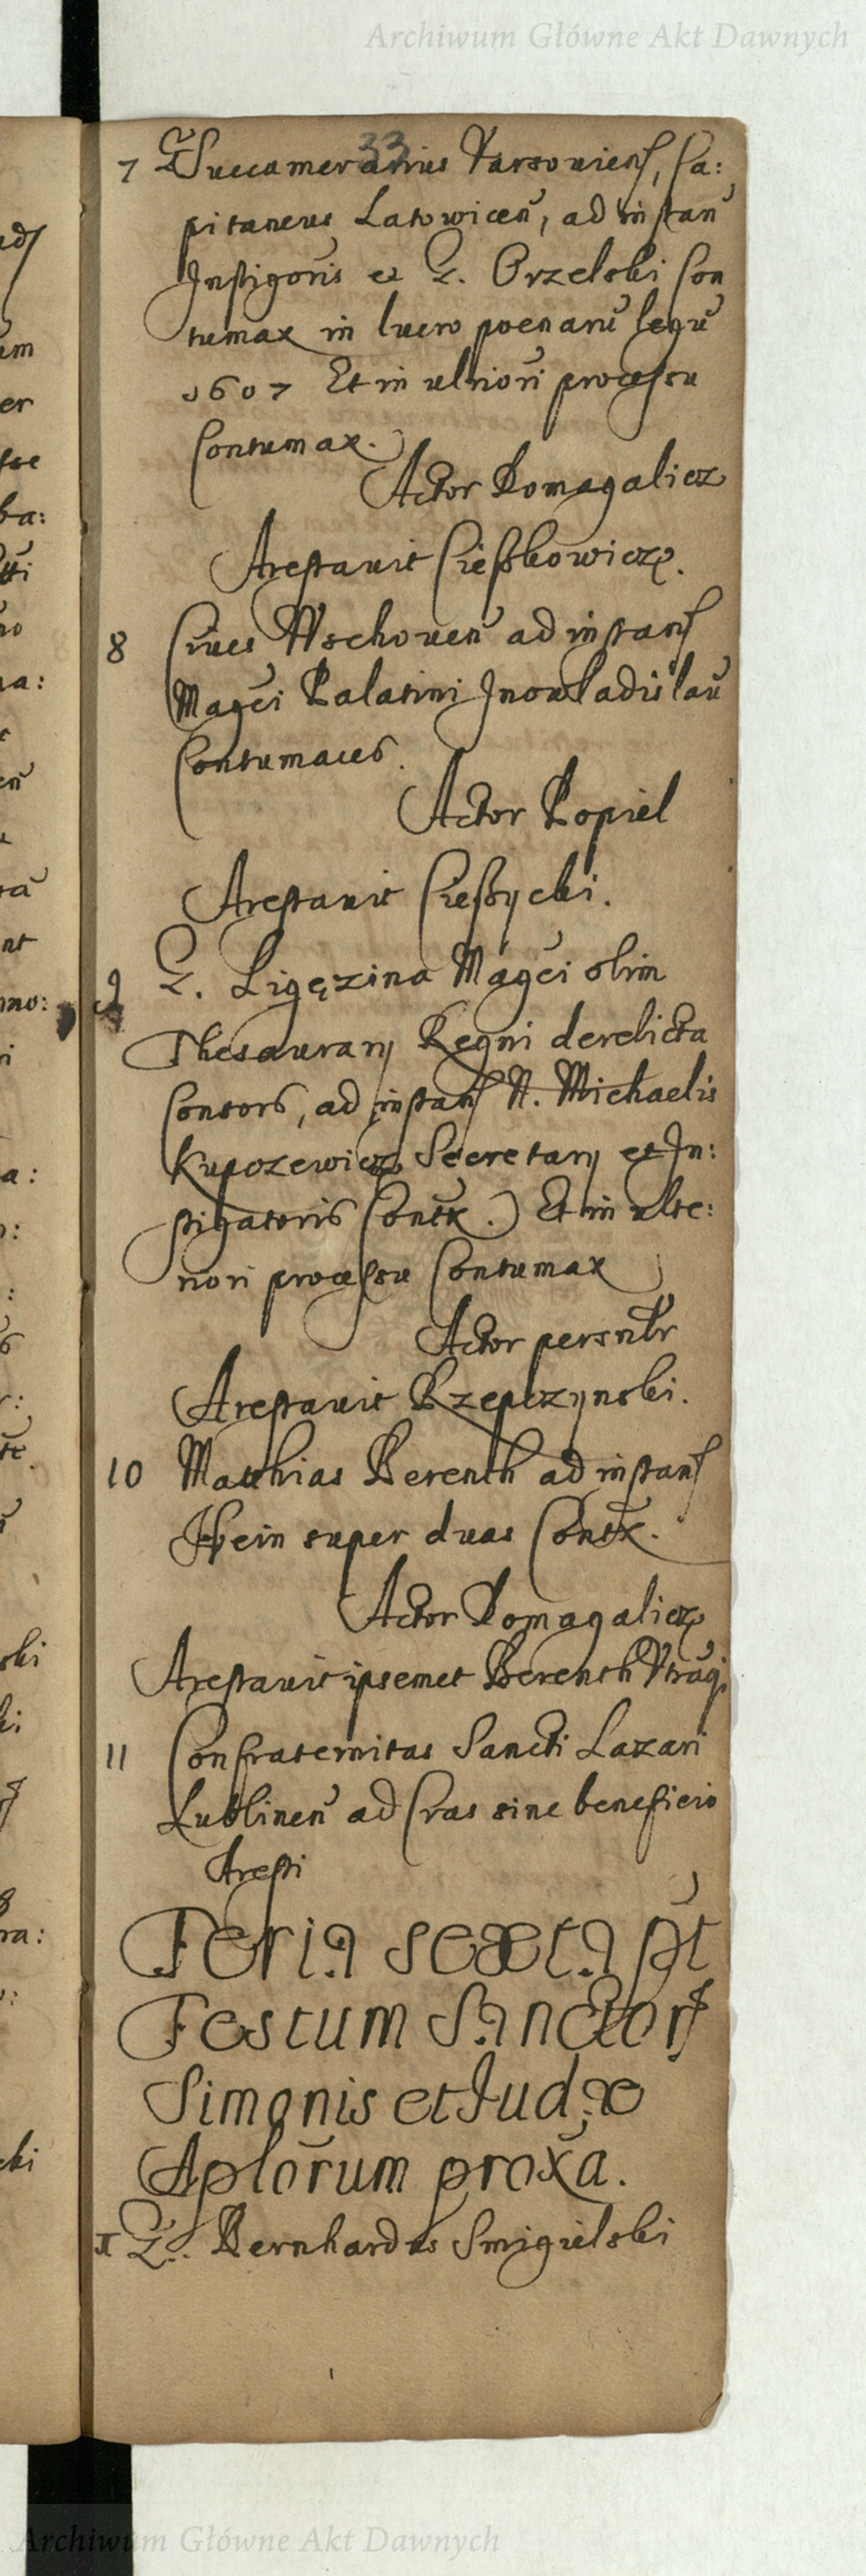 Archiwum Główne Akt Dawnych
33
7 G. Succamerarius Varsouiens, Ca:
pitaneus Latowicen̄, ad instan̄
Instigoris et G. Orzelski Con
tumax in lucro poenarū legū
1607 Et in ulriori processu
Contumax.
Actor Pomagalicz
Arestauit Cieszkowicz.
8 Ciues Wschouen̄ ad instans
Magci Palatini Inowladislau
Contumaces.
Actor Popiel
Arestauit Cieszycki.
9 G. Ligęzina Magci olim
Thesaurarij Regni derelicta
Consors, ad instans N. Michaelis
Kupczewicz Secretarij et In:
stigatoris Contx. Et in ulte:
riori processu Contumax
Actor persnlr
Arestauit Rzepczynski.
10 Matthias Berenth ad instans
Hein super duas Contx.
Actor Pomagalicz
Arestauit ipsemet Berenth Vtraq;
11 Confraternitas Sancti Lazari
Lublinen̄ ad Cras sine beneficio
Aresti
Feria sexta pt
Festum Sanctor
Simonis et Judæ
Aplōrum proxa.
1 G. Bernhardus Smigielski
Archiwum Główne Akt Dawnych